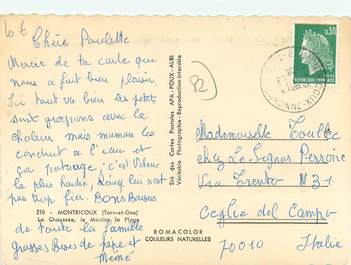 10 €
Chère Paulette
Merci de ta carte qui
nous a fait bien plaisir.
Ici tout va bien les petits
sont grognons avec la
chaleur mais maman les
conduit à l'eau et
ça patauge, c'est
la plus hardie, Rémy lui n'est
pas trop fier. Bons Baisers
de toute la famille
grosses Bises de pépé et
Mémé
210 - MONTRICOUX (Tarn-et-Gne)
La Chaussée, le Moulin, la Plage
Sté des Cartes Postales APA-POUX - ALBI
Véritable Photographie - Reproduction interdite
82
ROMACOLOR
COULEURS NATURELLES
0,30
REPUBLIQUE FRANÇAISE
Mademoiselle
chez Le Signor Perrone
Via Trento N 31
Ceglie del Campo
70010 Italie